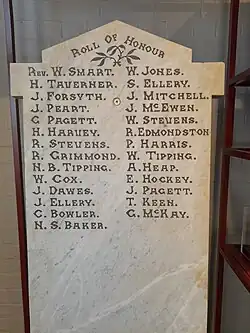 ROLL OF HONOUR
REV. W. SMART. W. JONES.
H. TAVERNER. S. ELLERY.
J. FORSYTH. J. MITCHELL.
J. PEART. J. McEWEN.
G. PAGETT. W. STEVENS.
H. HARVEY. R. EDMONDSTON
R. STEVENS. P. HARRIS.
R. GRIMMOND. W. TIPPING.
N. B. TIPPING. A. HEAP.
W. COX. E. HOCKEY.
J. DAWES. J. PAGETT.
J. ELLERY. T. KEEN.
C. BOWLER. G. McKAY.
N. S. BAKER.